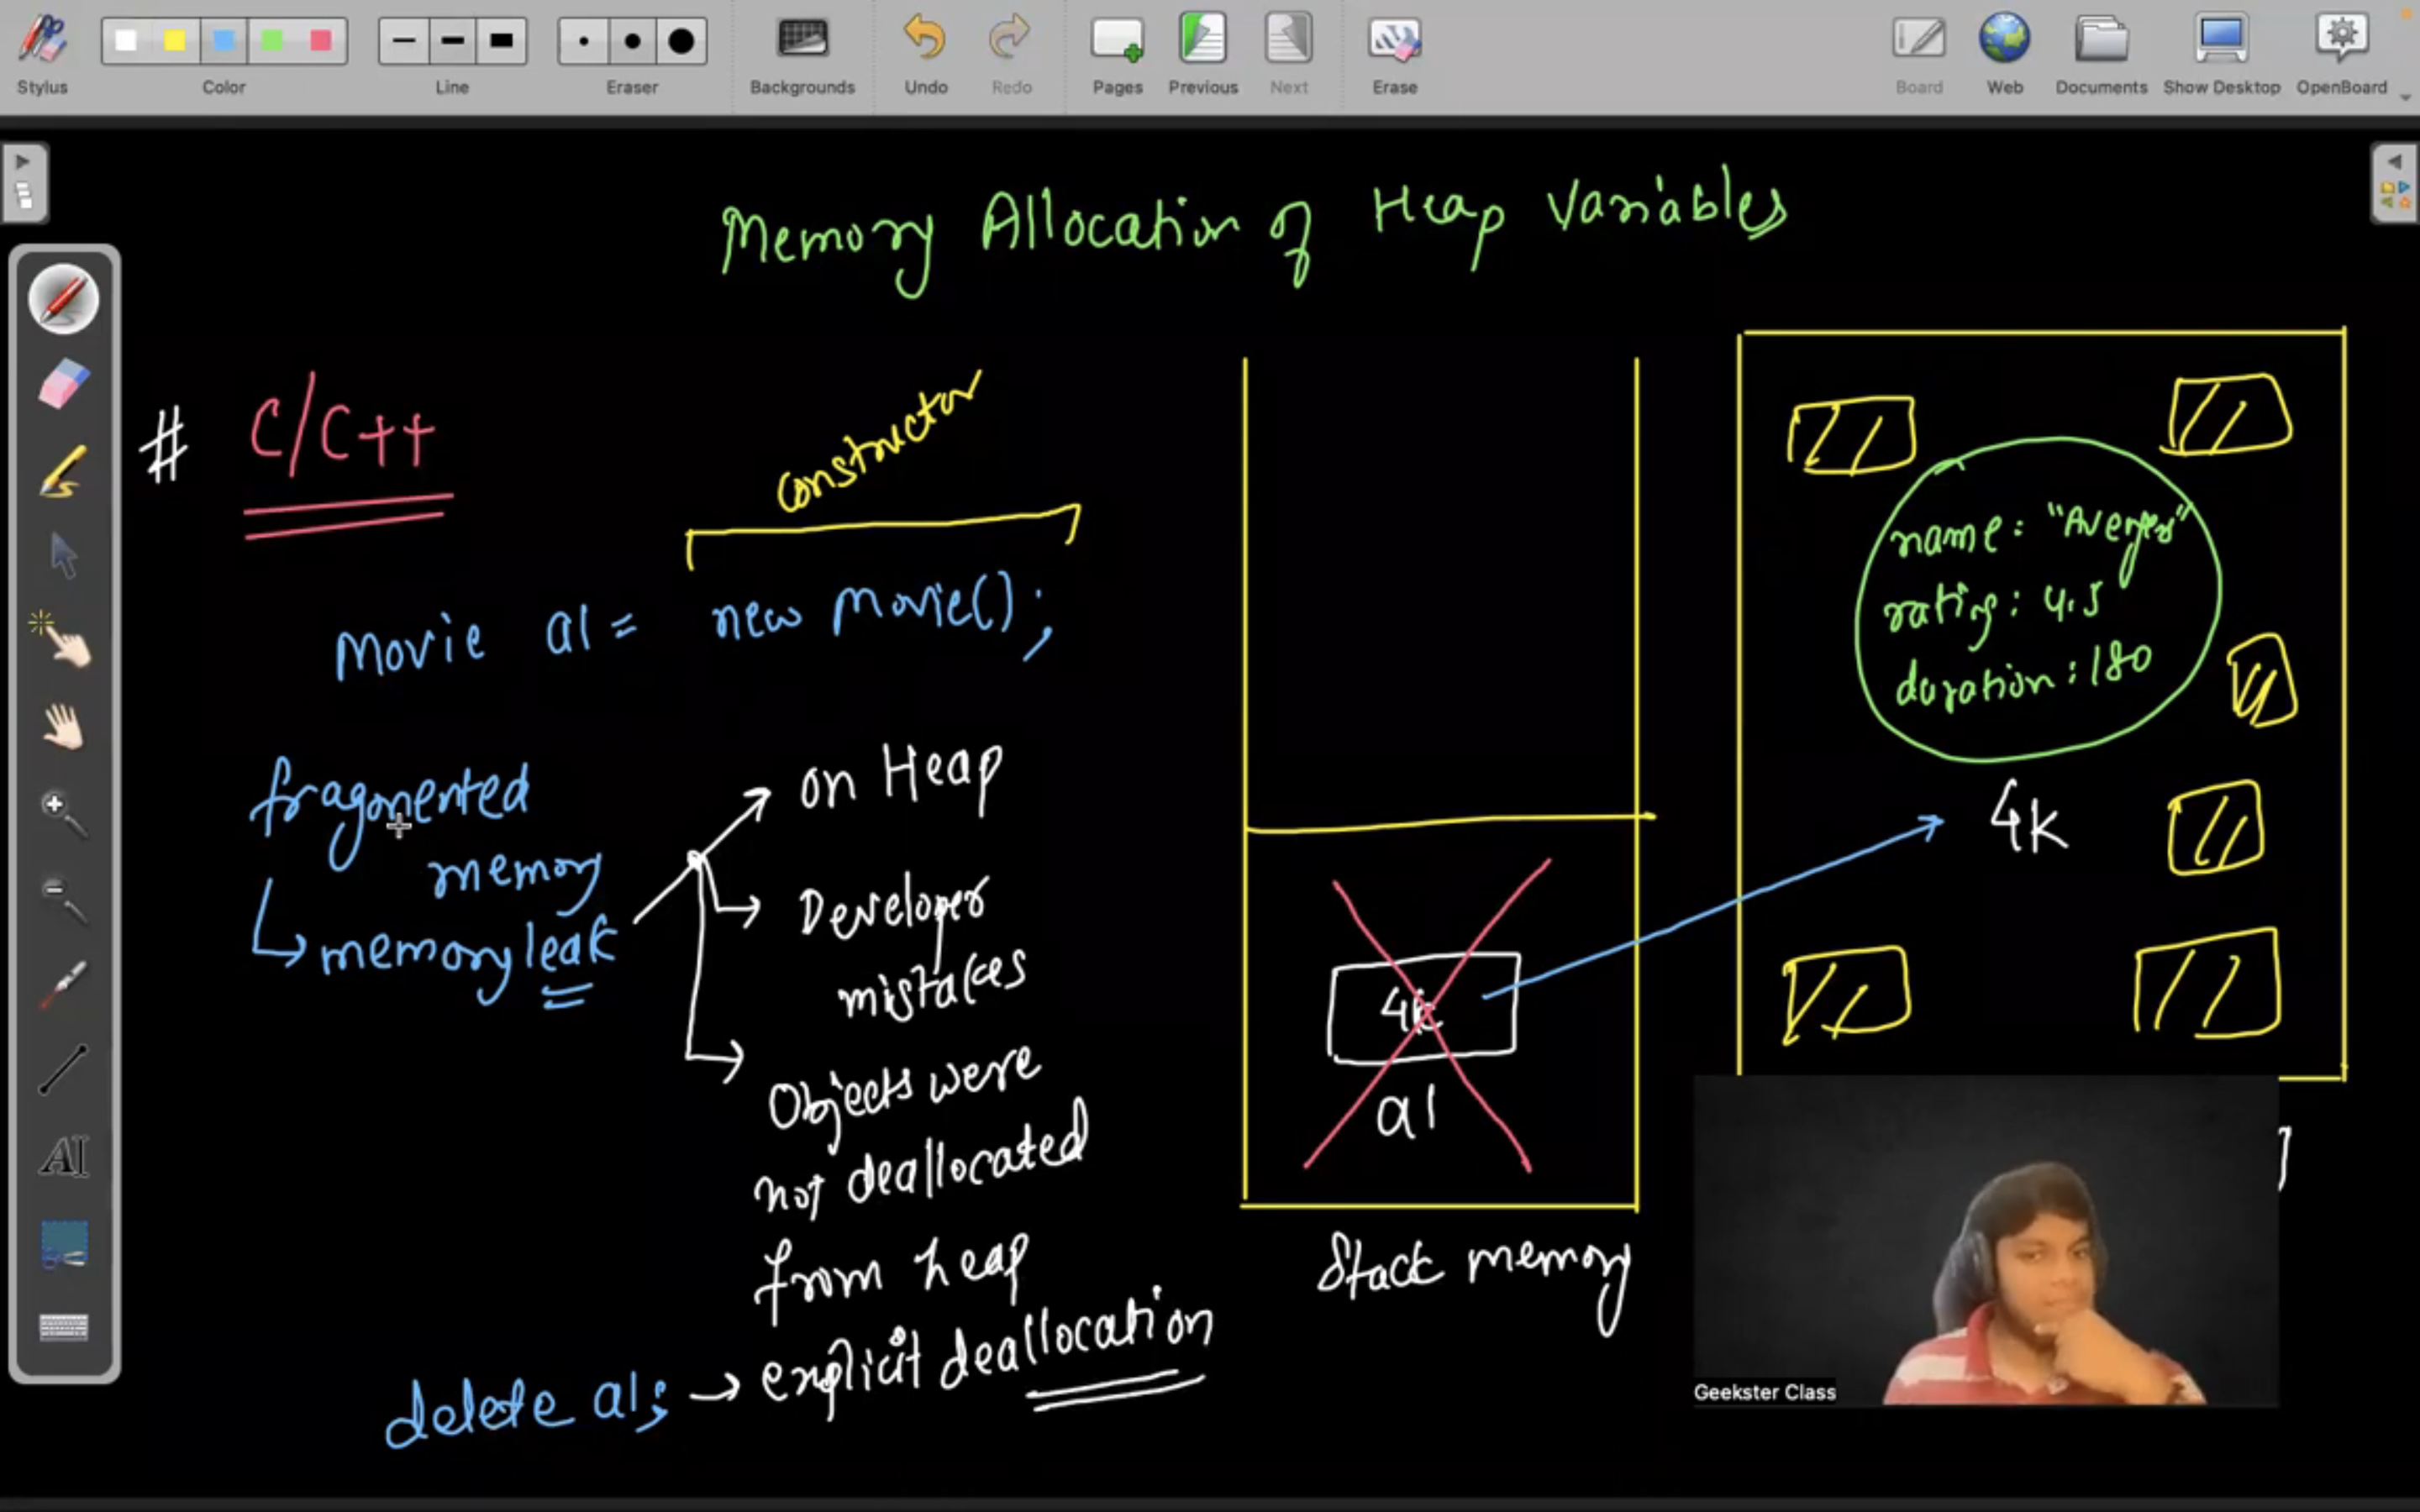 Stylus
Color
Line
Eraser
Backgrounds
Undo
Redo
Pages
Previous
Next
Erase
Board
Web
Documents
Show Desktop
OpenBoard
Memory Allocation of Heap Variables
# C/C++
constructor
Movie a1 = new Movie();
fragmented
memory
memory leak
on Heap
Developer
mistakes
Objects were
not deallocated
from heap
delete a1; → explicit deallocation
4k
a1
Stack memory
name: "Avenges"
rating: 4.5
duration: 180
4k
Geekster Class
AI